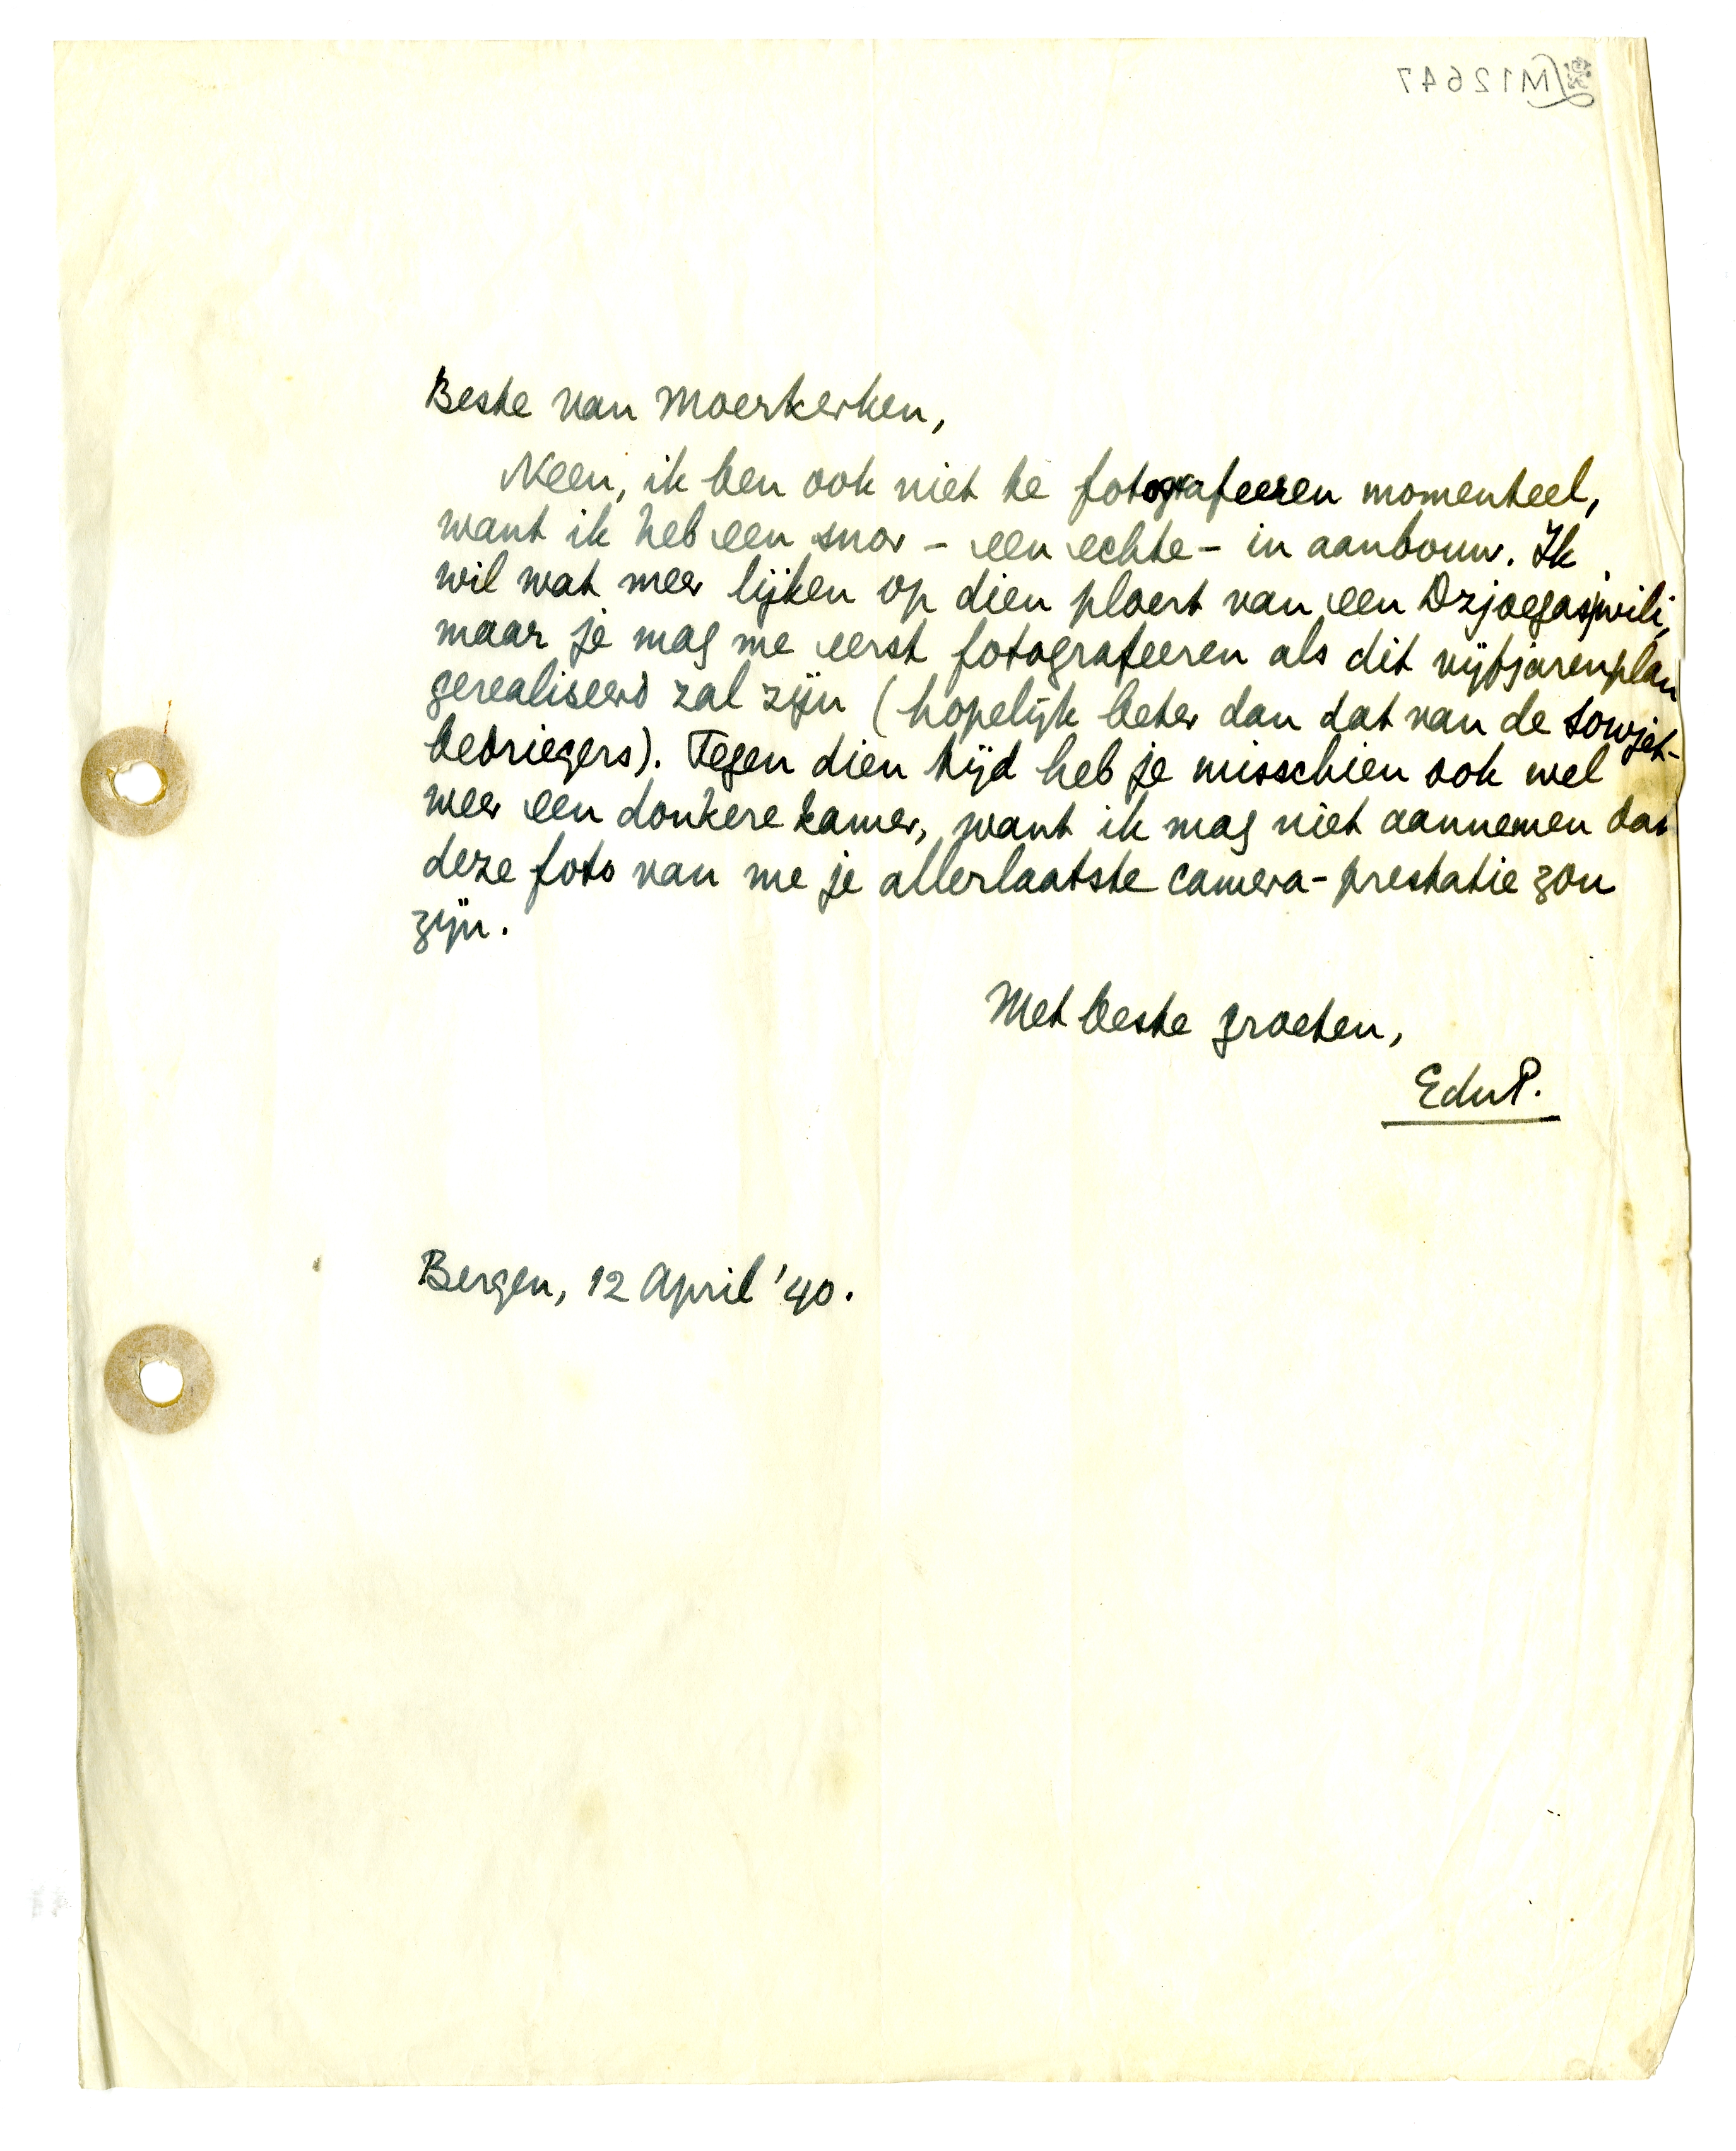 M12647
Beste van Moerkerken,
Neen, ik ben ook niet te fotografeeren momenteel,
want ik heb een snor - een echte - in aanbouw. Ik
wil wat meer lijken op dien ploert van een Dzjoegasjwili,
maar je mag me eerst fotografeeren als dit vijfjarenplan
gerealiseerd zal zijn (hopelijk beter dan dat van de Sowjet-
bedriegers). Tegen dien tijd heb je misschien ook wel
weer een donkere kamer, want ik mag niet aannemen dat
deze foto van me je allerlaatste camera-prestatie zou
zijn.
Met beste groeten,
EduP.
Bergen, 12 April '40.